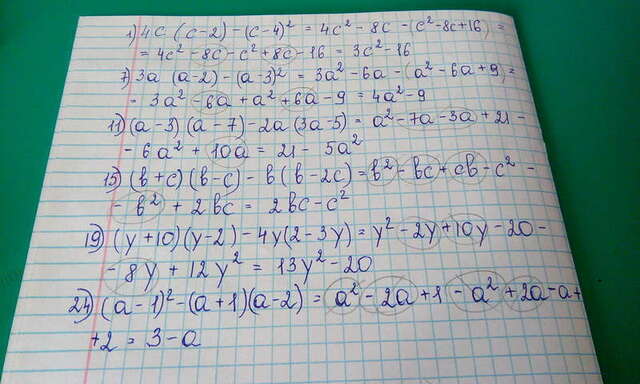 1) 4c (c-2) - (c-4)² = 4c² - 8c - (c² - 8c + 16) =
= 4c² - 8c - c² + 8c - 16 = 3c² - 16
7) 3a (a-2) - (a-3)² = 3a² - 6a - (a² - 6a + 9) =
- 3a² - 6a + a² + 6a - 9 = 4a² - 9
11) (a-3)(a-7) - 2a(3a-5) = a² - 7a - 3a + 21 -
- 6a² + 10a = 21 - 5a²
15) (в+c)(в-c) - в(в-2c) = в² - вc + cв - c² -
- в² + 2вc = 2вc - c²
19) (y+10)(y-2) - 4y(2-3y) = y² - 2y + 10y - 20 -
- 8y + 12y² = 13y² - 20
24) (a-1)² - (a+1)(a-2) = a² - 2a + 1 - a² + 2a - a +
+2 = 3 - a